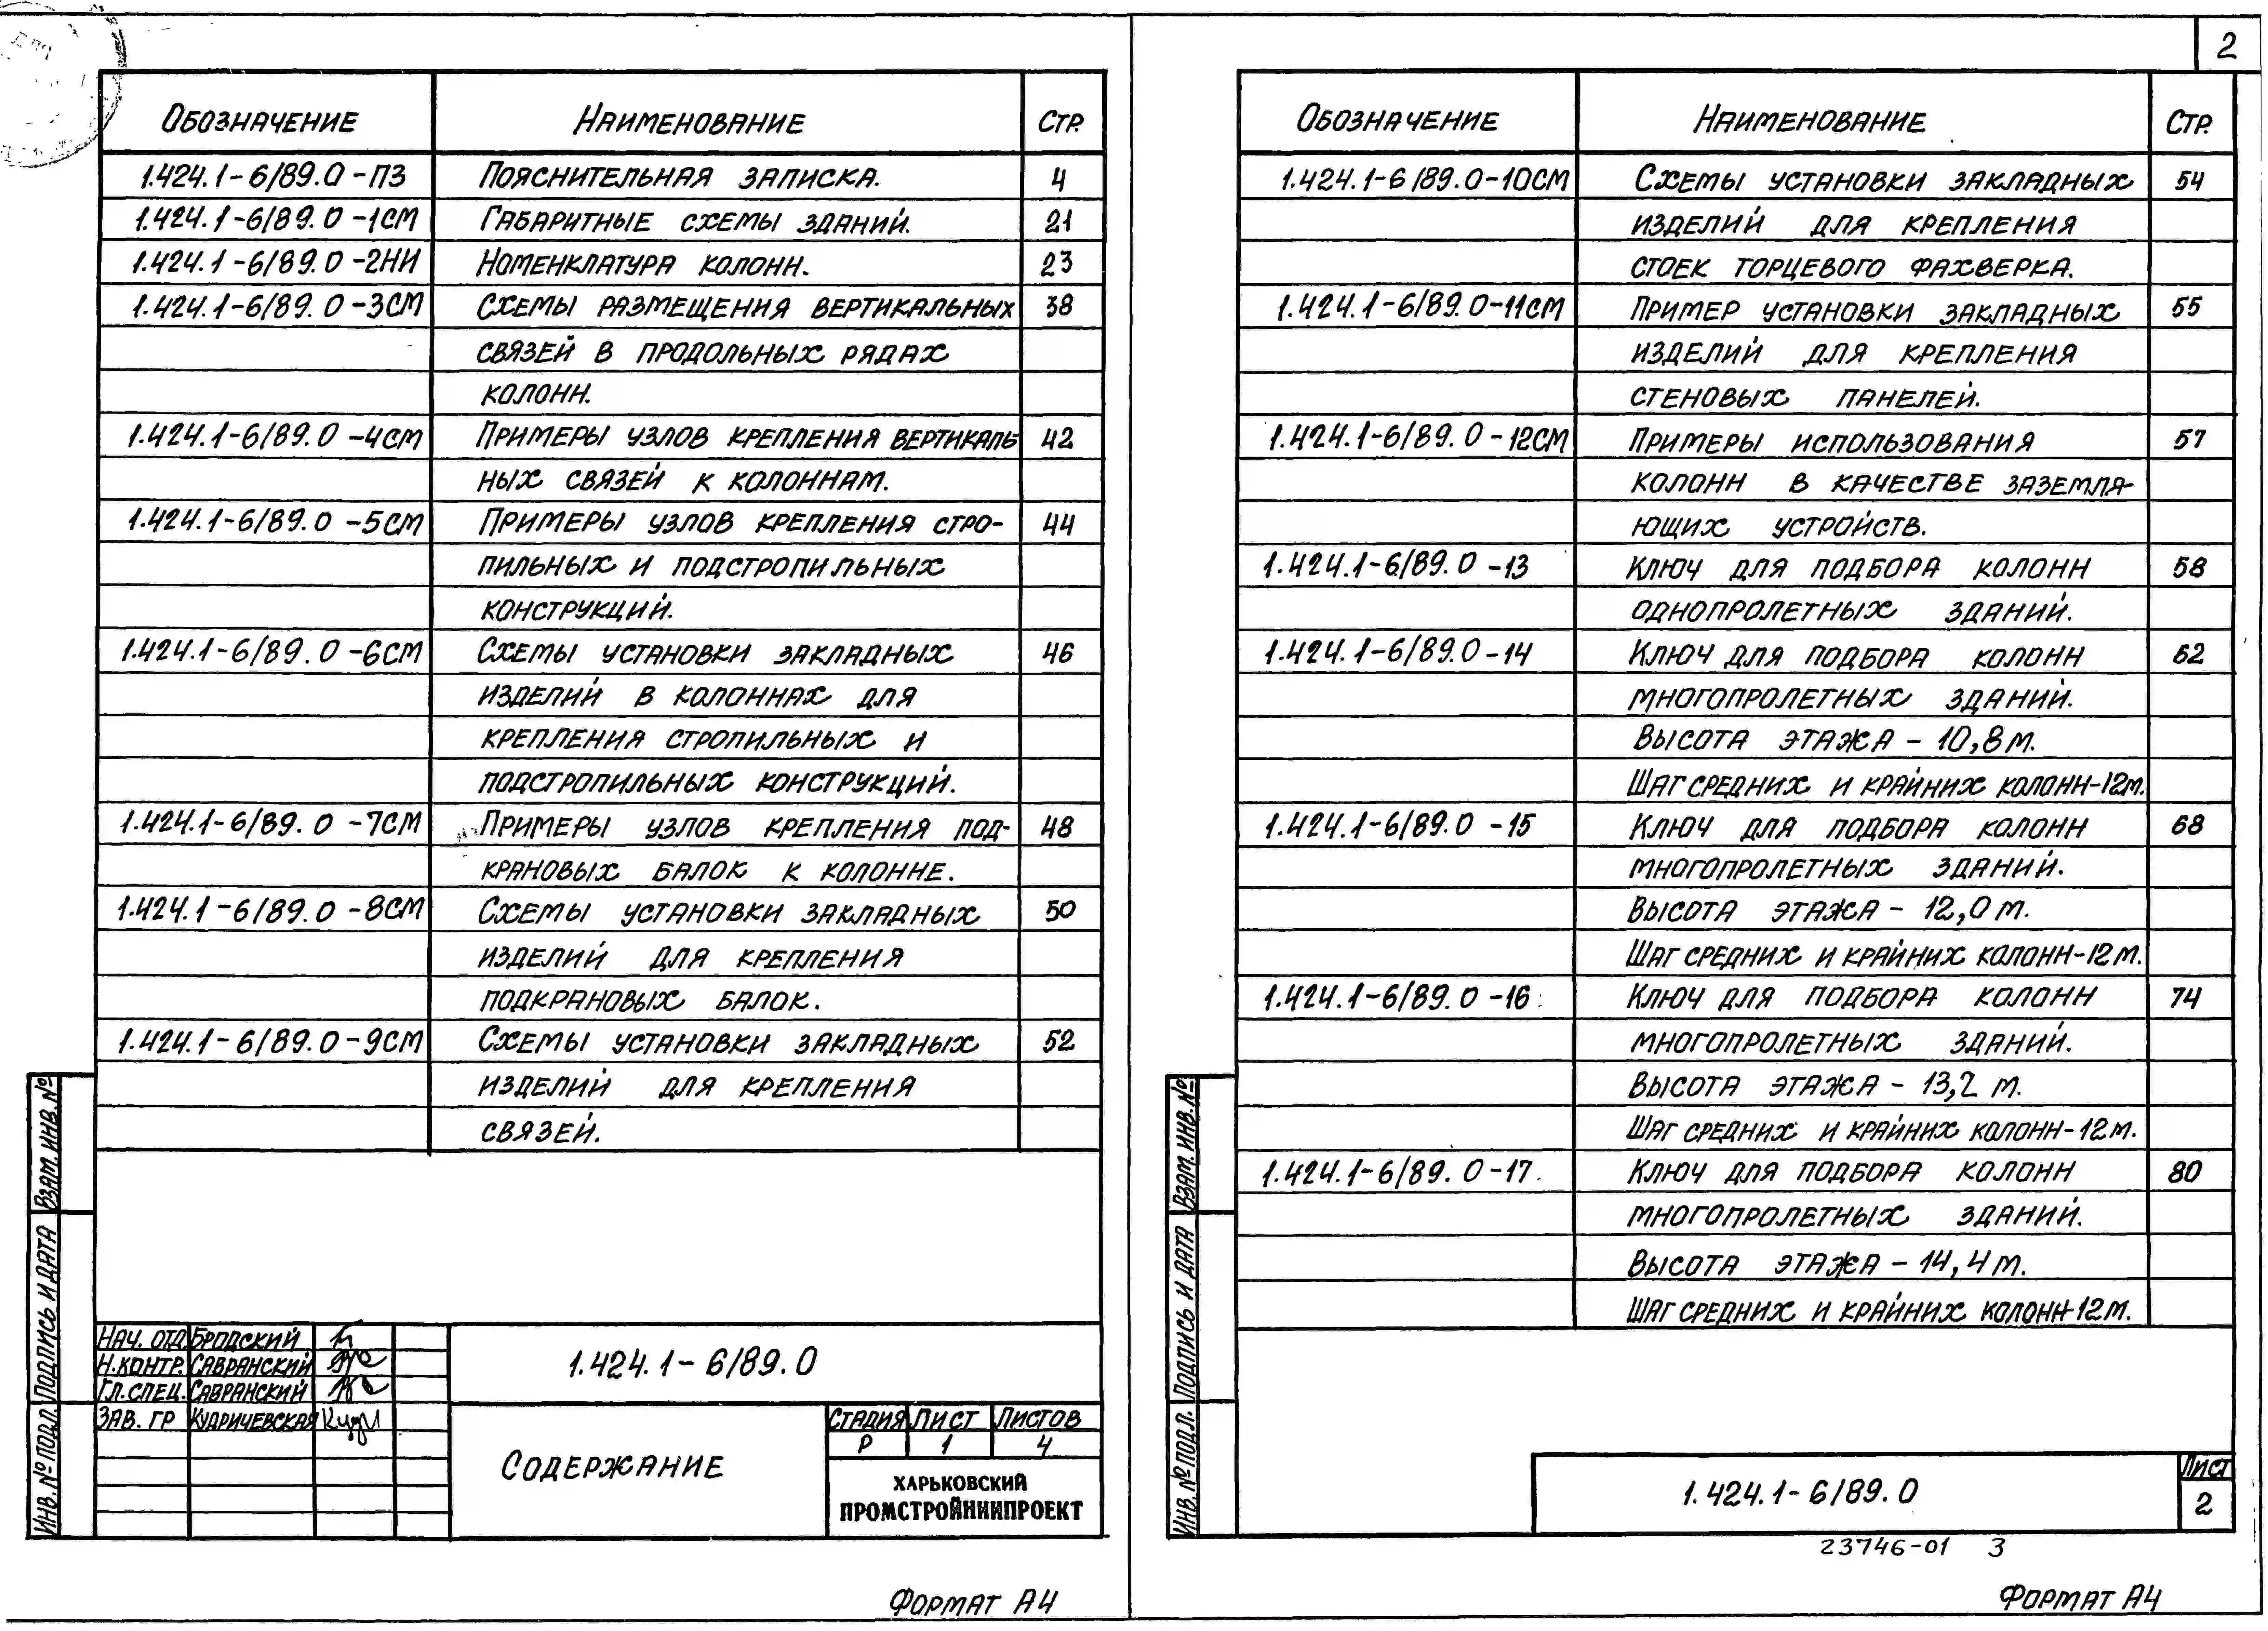 2
Обозначение Наименование Стр.
1.424.1-6/89.0-ПЗ Пояснительная записка. 4
1.424.1-6/89.0-1СМ Габаритные схемы зданий. 21
1.424.1-6/89.0-2НИ Номенклатура колонн. 23
1.424.1-6/89.0-3СМ Схемы размещения вертикальных 38
связей в продольных рядах
колонн.
1.424.1-6/89.0-4СМ Примеры узлов крепления вертикаль 42
ных связей к колоннам.
1.424.1-6/89.0-5СМ Примеры узлов крепления стро- 44
пильных и подстропильных
конструкций.
1.424.1-6/89.0-6СМ Схемы установки закладных 46
изделий в колоннах для
крепления стропильных и
подстропильных конструкций.
1.424.1-6/89.0-7СМ Примеры узлов крепления под- 48
крановых балок к колонне.
1.424.1-6/89.0-8СМ Схемы установки закладных 50
изделий для крепления
подкрановых балок.
1.424.1-6/89.0-9СМ Схемы установки закладных 52
изделий для крепления
связей.
Взам. инв. №
Подпись и дата
Инв. № подл.
Нач. отд. Бродский
Н.контр. Савранский
Гл. спец. Савранский
Зав. гр Кудричевская
1.424.1-6/89.0
Содержание
Стадия Лист Листов
Р 1 4
ХАРЬКОВСКИЙ
ПРОМСТРОЙНИИПРОЕКТ
Формат А4
Обозначение Наименование Стр.
1.424.1-6/89.0-10СМ Схемы установки закладных 54
изделий для крепления
стоек торцевого фахверка.
1.424.1-6/89.0-11СМ Пример установки закладных 55
изделий для крепления
стеновых панелей.
1.424.1-6/89.0-12СМ Примеры использования 57
колонн в качестве заземля-
ющих устройств.
1.424.1-6/89.0-13 Ключ для подбора колонн 58
однопролетных зданий.
1.424.1-6/89.0-14 Ключ для подбора колонн 62
многопролетных зданий.
Высота этажа - 10,8 м.
Шаг средних и крайних колонн-12м.
1.424.1-6/89.0-15 Ключ для подбора колонн 68
многопролетных зданий.
Высота этажа - 12,0 м.
Шаг средних и крайних колонн-12м.
1.424.1-6/89.0-16 Ключ для подбора колонн 74
многопролетных зданий.
Высота этажа - 13,2 м.
Шаг средних и крайних колонн-12м.
1.424.1-6/89.0-17 Ключ для подбора колонн 80
многопролетных зданий.
Высота этажа - 14,4 м.
Шаг средних и крайних колонн-12м.
Взам. инв. №
Подпись и дата
Инв. № подл.
1.424.1-6/89.0
Лист
2
23746-01 3
Формат А4